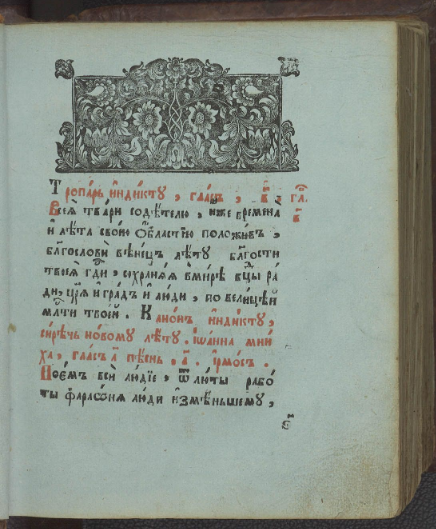 Тропа́рь и҆ндікту , гласъ , в҃ . гл҃
Всея̀ тва́ри содѣ́телю , и҆́же времена̀ в҃
и҆ лѣ́та свое́ю ѻ҆́бластїю положи́въ ,
благословѝ вѣне́цъ лѣ́ту бл҃гости
твоея̀ гдⷭ҇и , сохраня́я в ми́рѣ бц҃ы ра́
ди , цр҃я̀ и҆ гра́дъ и҆ лю́ди , по вели́цѣй
млⷭ҇ти твое́й . Кано́нъ и҆нди́кту ,
си́рѣчь но́вому лѣ́ту . і҆ѡа́нна мни́
ха , гла́съ а҃ пѣ́снь , а҃ . і҆рмо́съ .
Пое́мъ всѝ лю́дїе , ѿ лю́ты рабо́
ты фараѡ́ня лю́ди и҆змѣ́ньшему ,